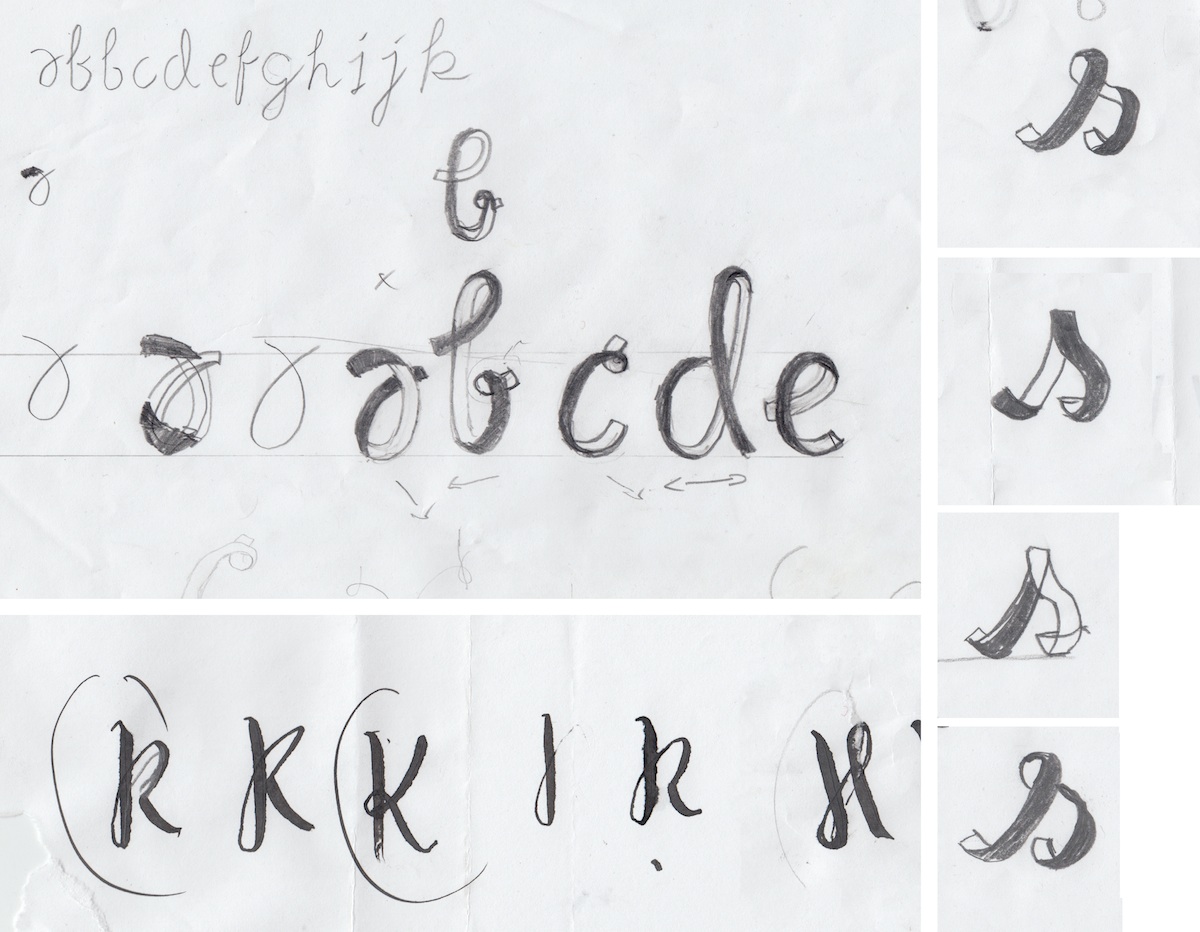 abbcdefghijk
a
b
x
a a a abcde
k K K l k H
s
s
s
s